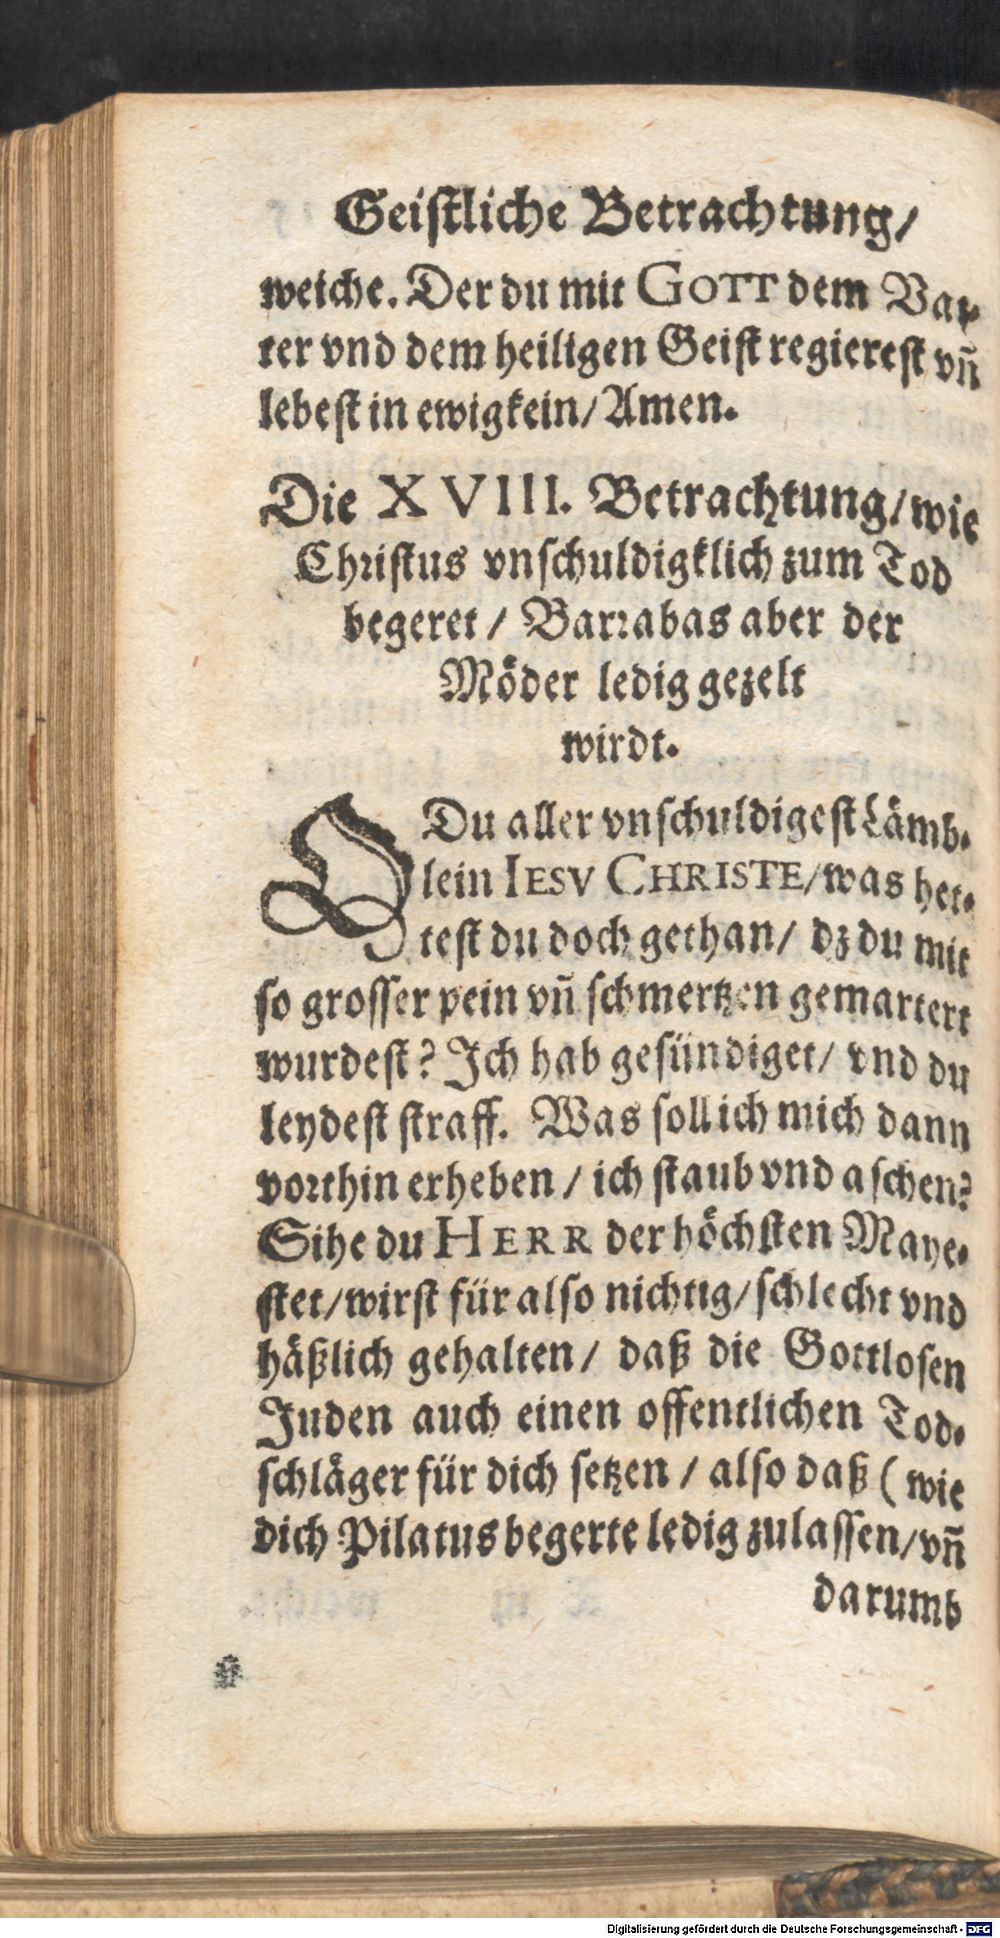 Geistliche Betrachtung/
weiche. Der du mit GOTT dem Vat-
ter vnd dem heiligen Geist regierest vñ
lebest in ewigkein/ Amen.
Die XVIII. Betrachtung/ wie
Christus vnschuldigklich zum Tod
begeret / Barrabas aber der
Möder ledig gezelt
wirdt.
O Du aller vnschuldigest Lämb-
lein IESV CHRISTE/ was het-
test du doch gethan/ dz du mit
so grosser pein vñ schmertzen gemartert
wurdest? Ich hab gesündiget/ vnd du
leydest straff. Was soll ich mich dann
vorthin erheben / ich staub vnd aschen?
Sihe du HERR der höchsten Maye-
stet/ wirst für also nichtig/ schlecht vnd
häßlich gehalten/ daß die Gottlosen
Juden auch einen offentlichen Tod-
schläger für dich setzen / also daß ( wie
dich Pilatus begerte ledig zulassen/ vñ
darumb
Digitalisierung gefördert durch die Deutsche Forschungsgemeinschaft - DFG